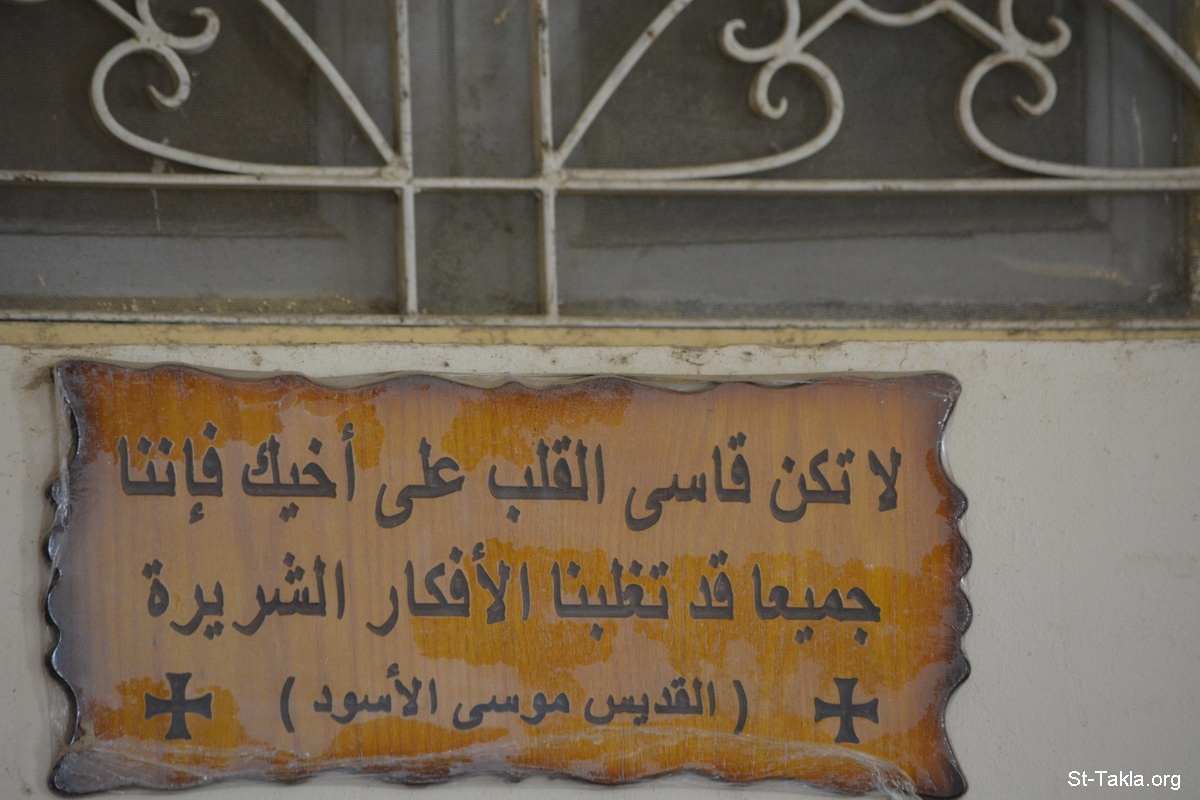 لا تكن قاسى القلب على أخيك فإننا
جميعا قد تغلبنا الأفكار الشريرة
( القديس موسى الأسود )
St-Takla.org